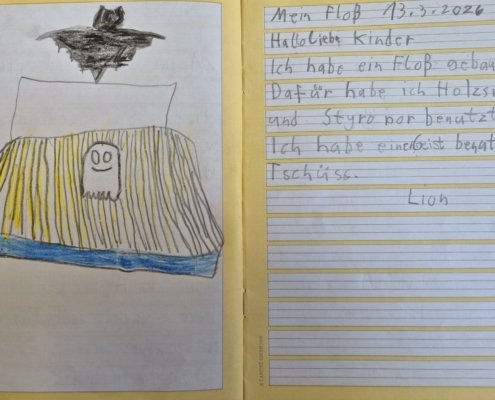 Mein Floß 13.3.2026
Hallo Liebe Kinder
Ich habe ein Floß gebau
Dafür habe ich Holzs
und Styropor benutzt
Ich habe einen Geist benat
Tschüss.
Lion